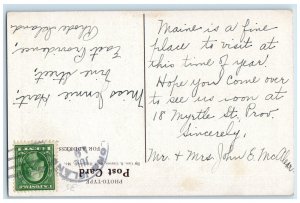 Maine is a fine
place to visit at
this time of year
Hope you come over
to see us soon at
18 Myrtle St, Prov.
Sincerely,
Mr + Mrs John E.
Miss Jennie Hart,
Street,
East Providence,
Rhode Island
PHOTO-TYPE
Post Card
FOR ADDRESS